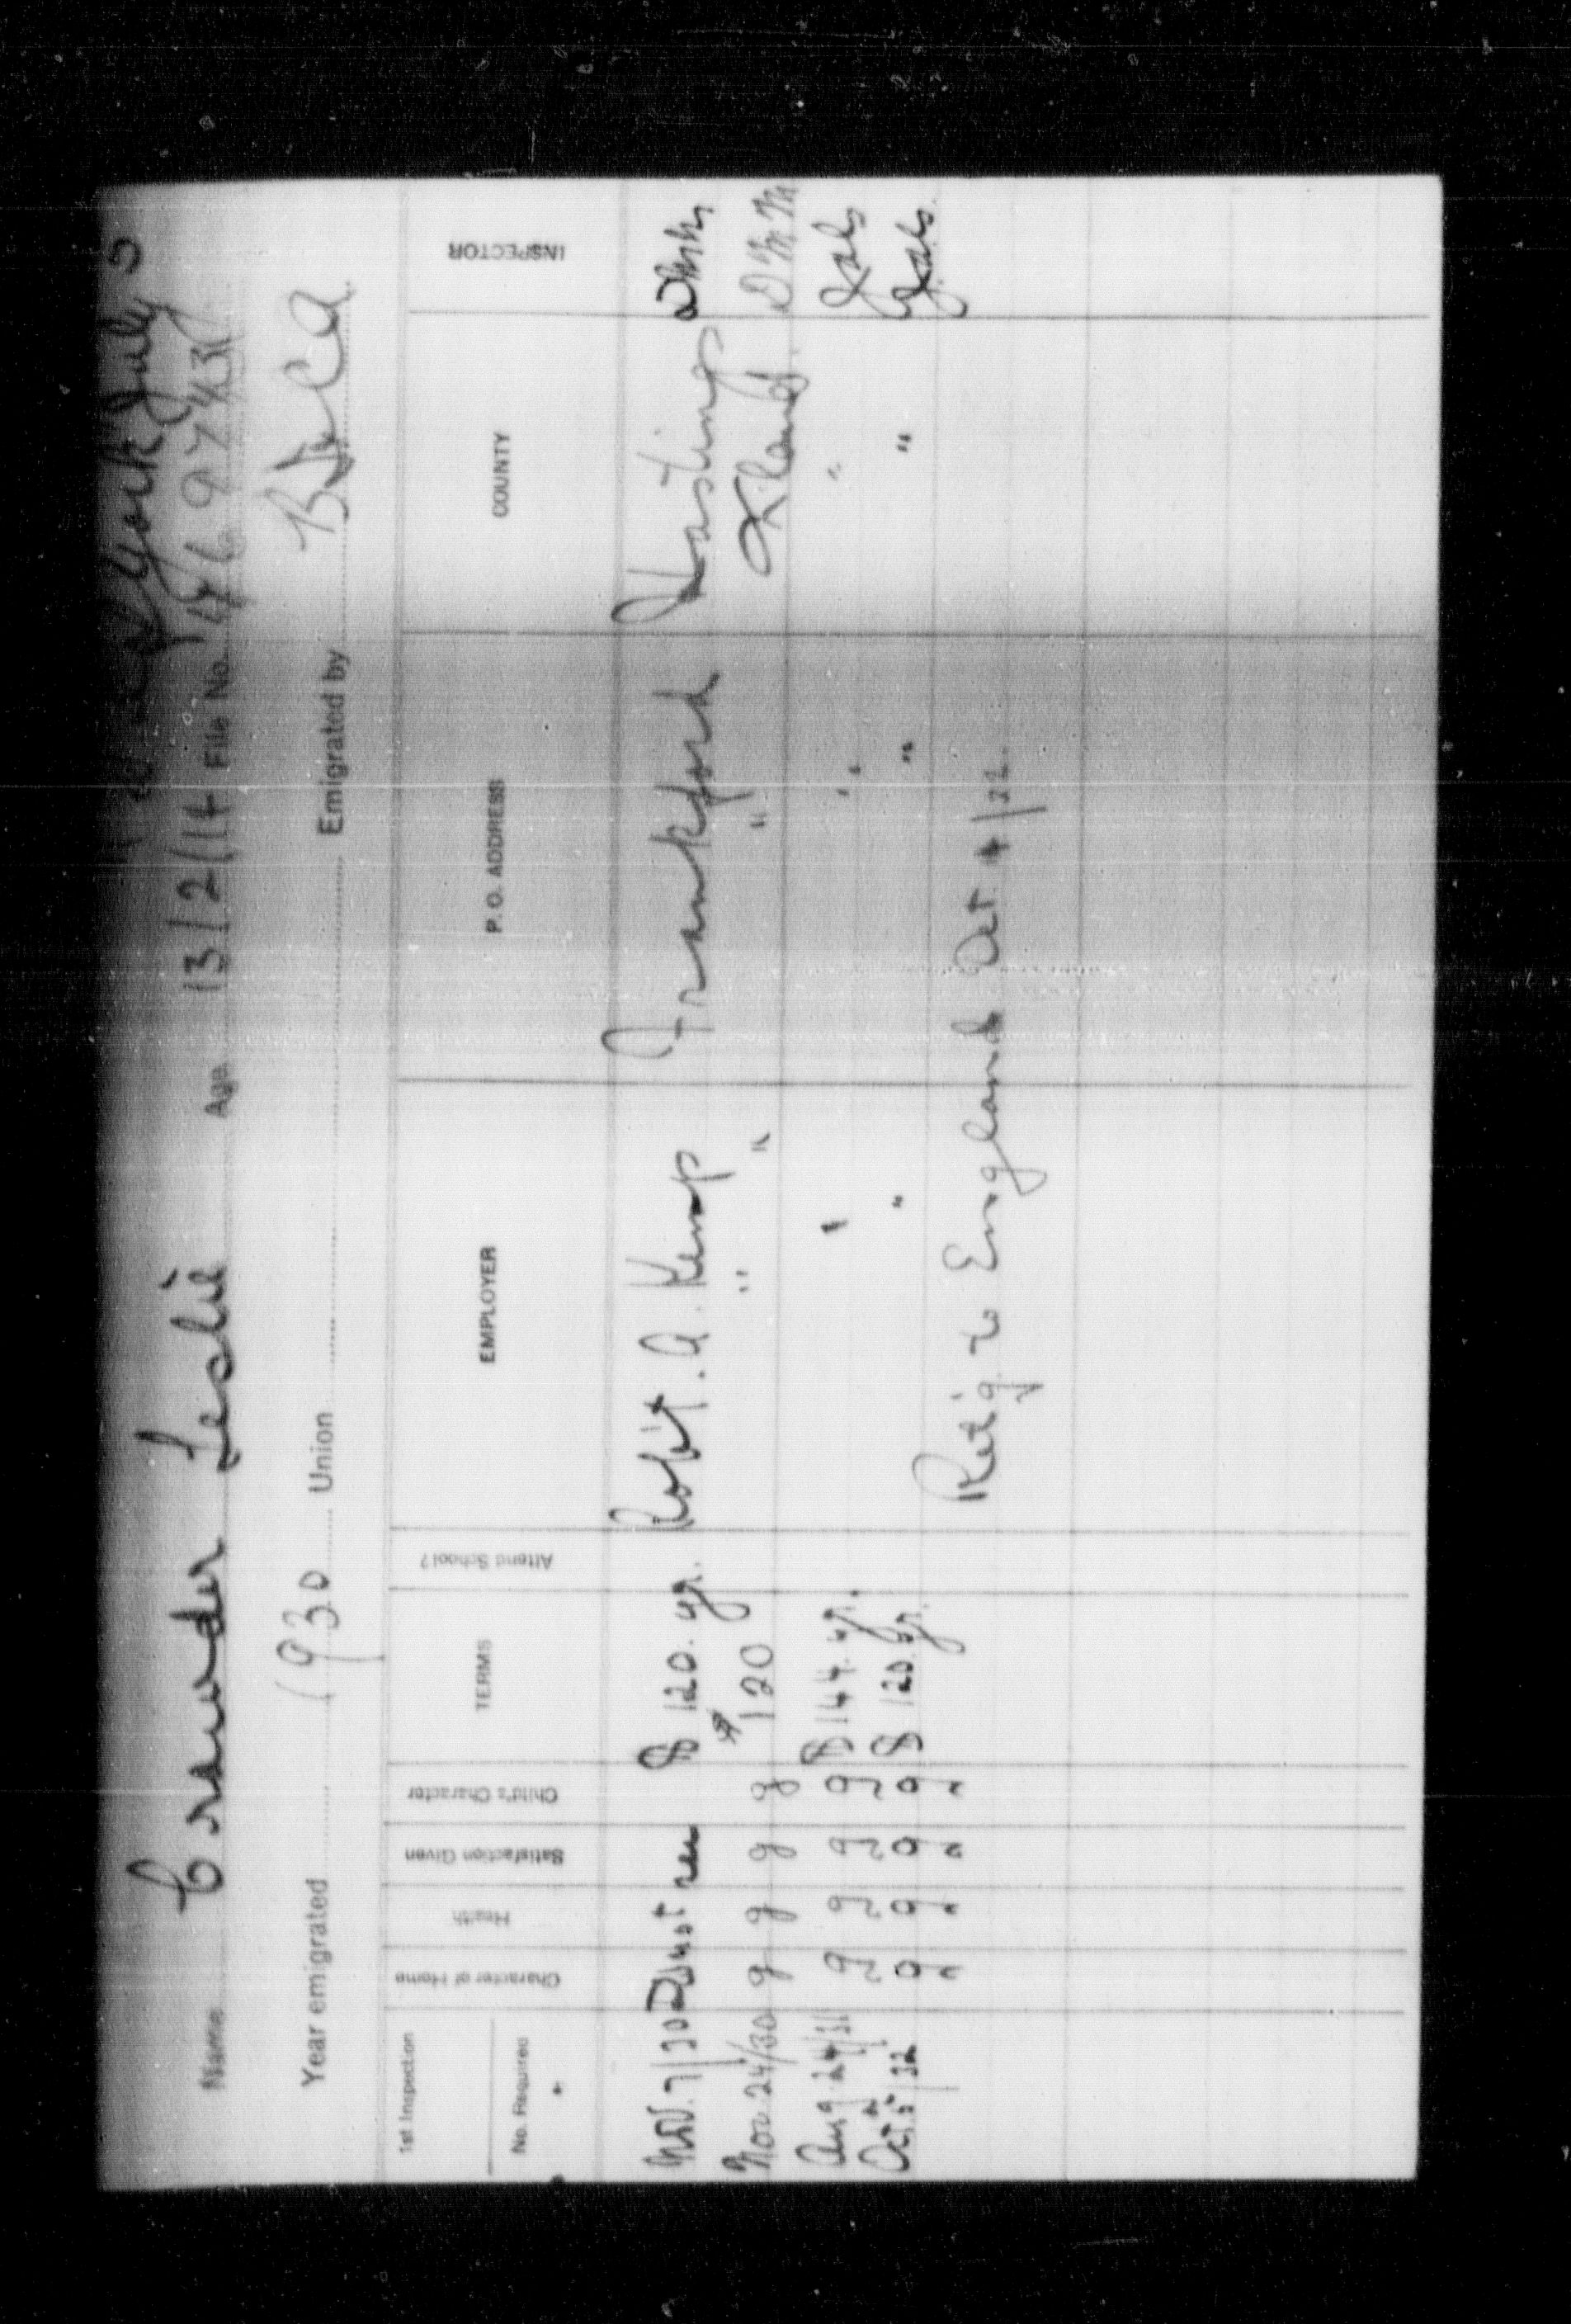 York July 5
Name Crowder Leslie Age 13/2/14 File No.
Year emigrated 1930 Union Emigrated by
1st Inspection
No. Required Character of Home Health Satisfaction Given Child's Character TERMS Attend School? EMPLOYER P.O. ADDRESS COUNTY INSPECTOR
Nov. 7/30 $120. yr. Robt. A. Kemp Frankford Hastings
Nov. 24/30 g g g g $120 " " " D M M
Aug 24/31 g g g g $144. yr. " " "
Oct 5/32 g g g g $120. yr. " " "
Ret'g to England Oct 4/32